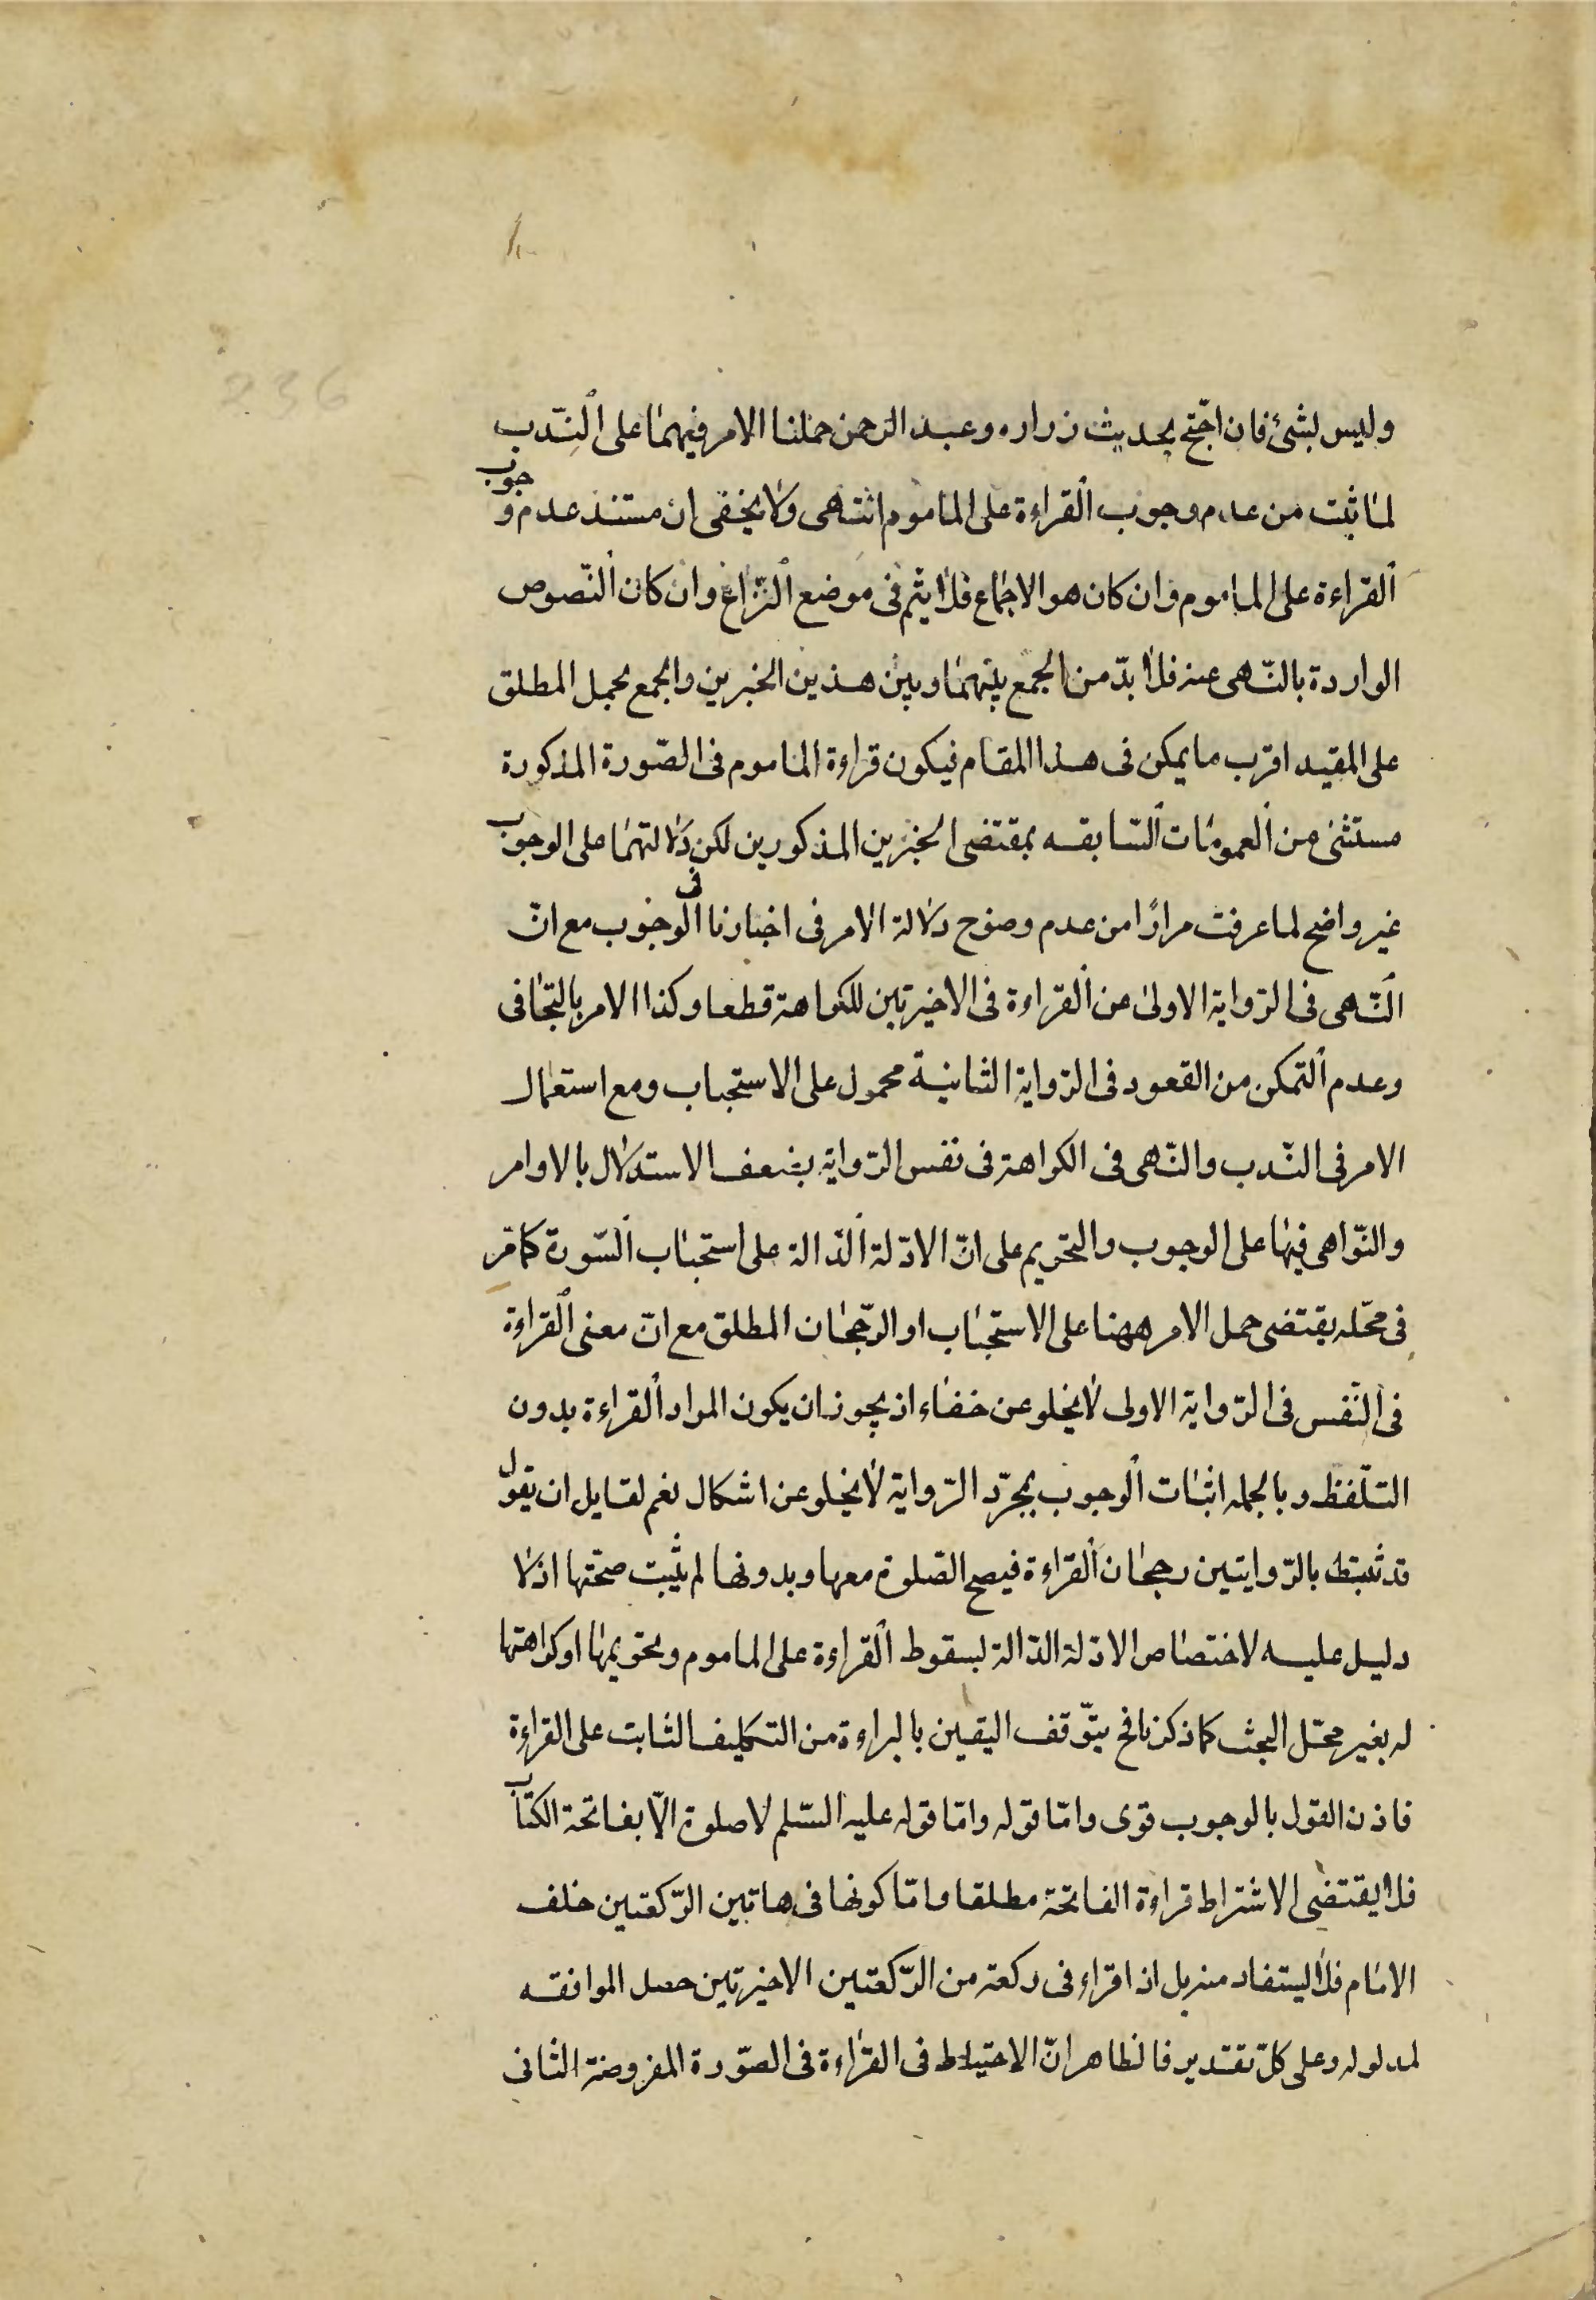 236
وليس بشئ فان احتج بحديث زراره وعبد الرحمن حملنا الامر فيهما على الندب
لما ثبت من عدم وجوب القراءة على الماموم انتهى ولا يخفى ان مستند عدم وجوب
القراءة على الماموم وان كان هو الاجماع فلا يتم فى موضع النزاع وان كان النصوص
الواردة بالنهى عنه فلا بد من الجمع بينهما وبين هذين الخبرين والجمع بحمل المطلق
على المقيد اقرب ما يمكن فى هذا المقام فيكون قراءة الماموم فى الصورة المذكورة
مستثنى من العمومات السابقه بمقتضى الخبرين المذكورين لكن دلالتهما على الوجوب
غير واضح لما عرفت مرارًا من عدم وضوح دلالة الامر فى اخبارنا فى الوجوب مع ان
النهى فى الرواية الاولى عن القراءة فى الاخيرتين للكراهة قطعا وكذا الامر بالتجافى
وعدم التمكن من القعود فى الرواية الثانية محمول على الاستحباب ومع استعمال
الامر فى الندب والنهى فى الكراهة فى نفس الرواية يضعف الاستدلال بالاوامر
والنواهى فيها على الوجوب والتحريم على ان الادلة الدالة على استحباب السورة كما مر
فى محله يقتضى حمل الامر ههنا على الاستحباب او الرجحان المطلق مع ان معنى القراءة
فى النفس فى الرواية الاولى لا يخلو عن خفاء اذ يجوز ان يكون المراد القراءة بدون
التلفظ وبالجمله اثبات الوجوب بمجرد الرواية لا يخلو عن اشكال نعم لقايل ان يقول
قد ثبت بالروايتين رجحان القراءة فيصح الصلوة معها وبدونها لم يثبت صحتها اذ لا
دليل عليه لاختصاص الادلة الدالة لسقوط القراءة على الماموم وتحريمها او كراهتها
له بغير محل البحث كما ذكرنا فح يتوقف اليقين بالبراءة من التكليف الثابت على القراءة
فاذن القول بالوجوب قوى واما قوله واما قوله عليه السلم لا صلوة الا بفاتحة الكتاب
فلا يقتضى الا اشتراط قراءة الفاتحة مطلقا واما كونها فى هاتين الركعتين خلف
الامام فلا يستفاد منه بل اذا قراء فى ركعة من الركعتين الاخيرتين حصل الموافقه
لمدلوله وعلى كل تقدير فالظاهر ان الاحتياط فى القراءة فى الصورة المفروضة الثانى